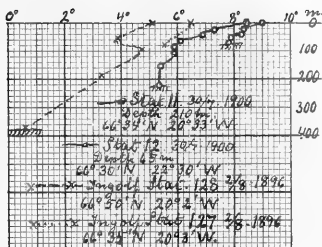 0° 2° 4° 6° 8° 10° m
0
100
200
300
400
Stat 11 30/7 1900
Depth 210 m.
66°34' N 20°33' W
Stat 12 30/7 1900
Depth 65 m
66°30' N 22°30' W
x---x Ingolf Stat. 128 2⁄8-1896
66°50' N 20°2' W
x---x Ingolf Stat 127 2⁄8-1896
66°33' N 20° W.